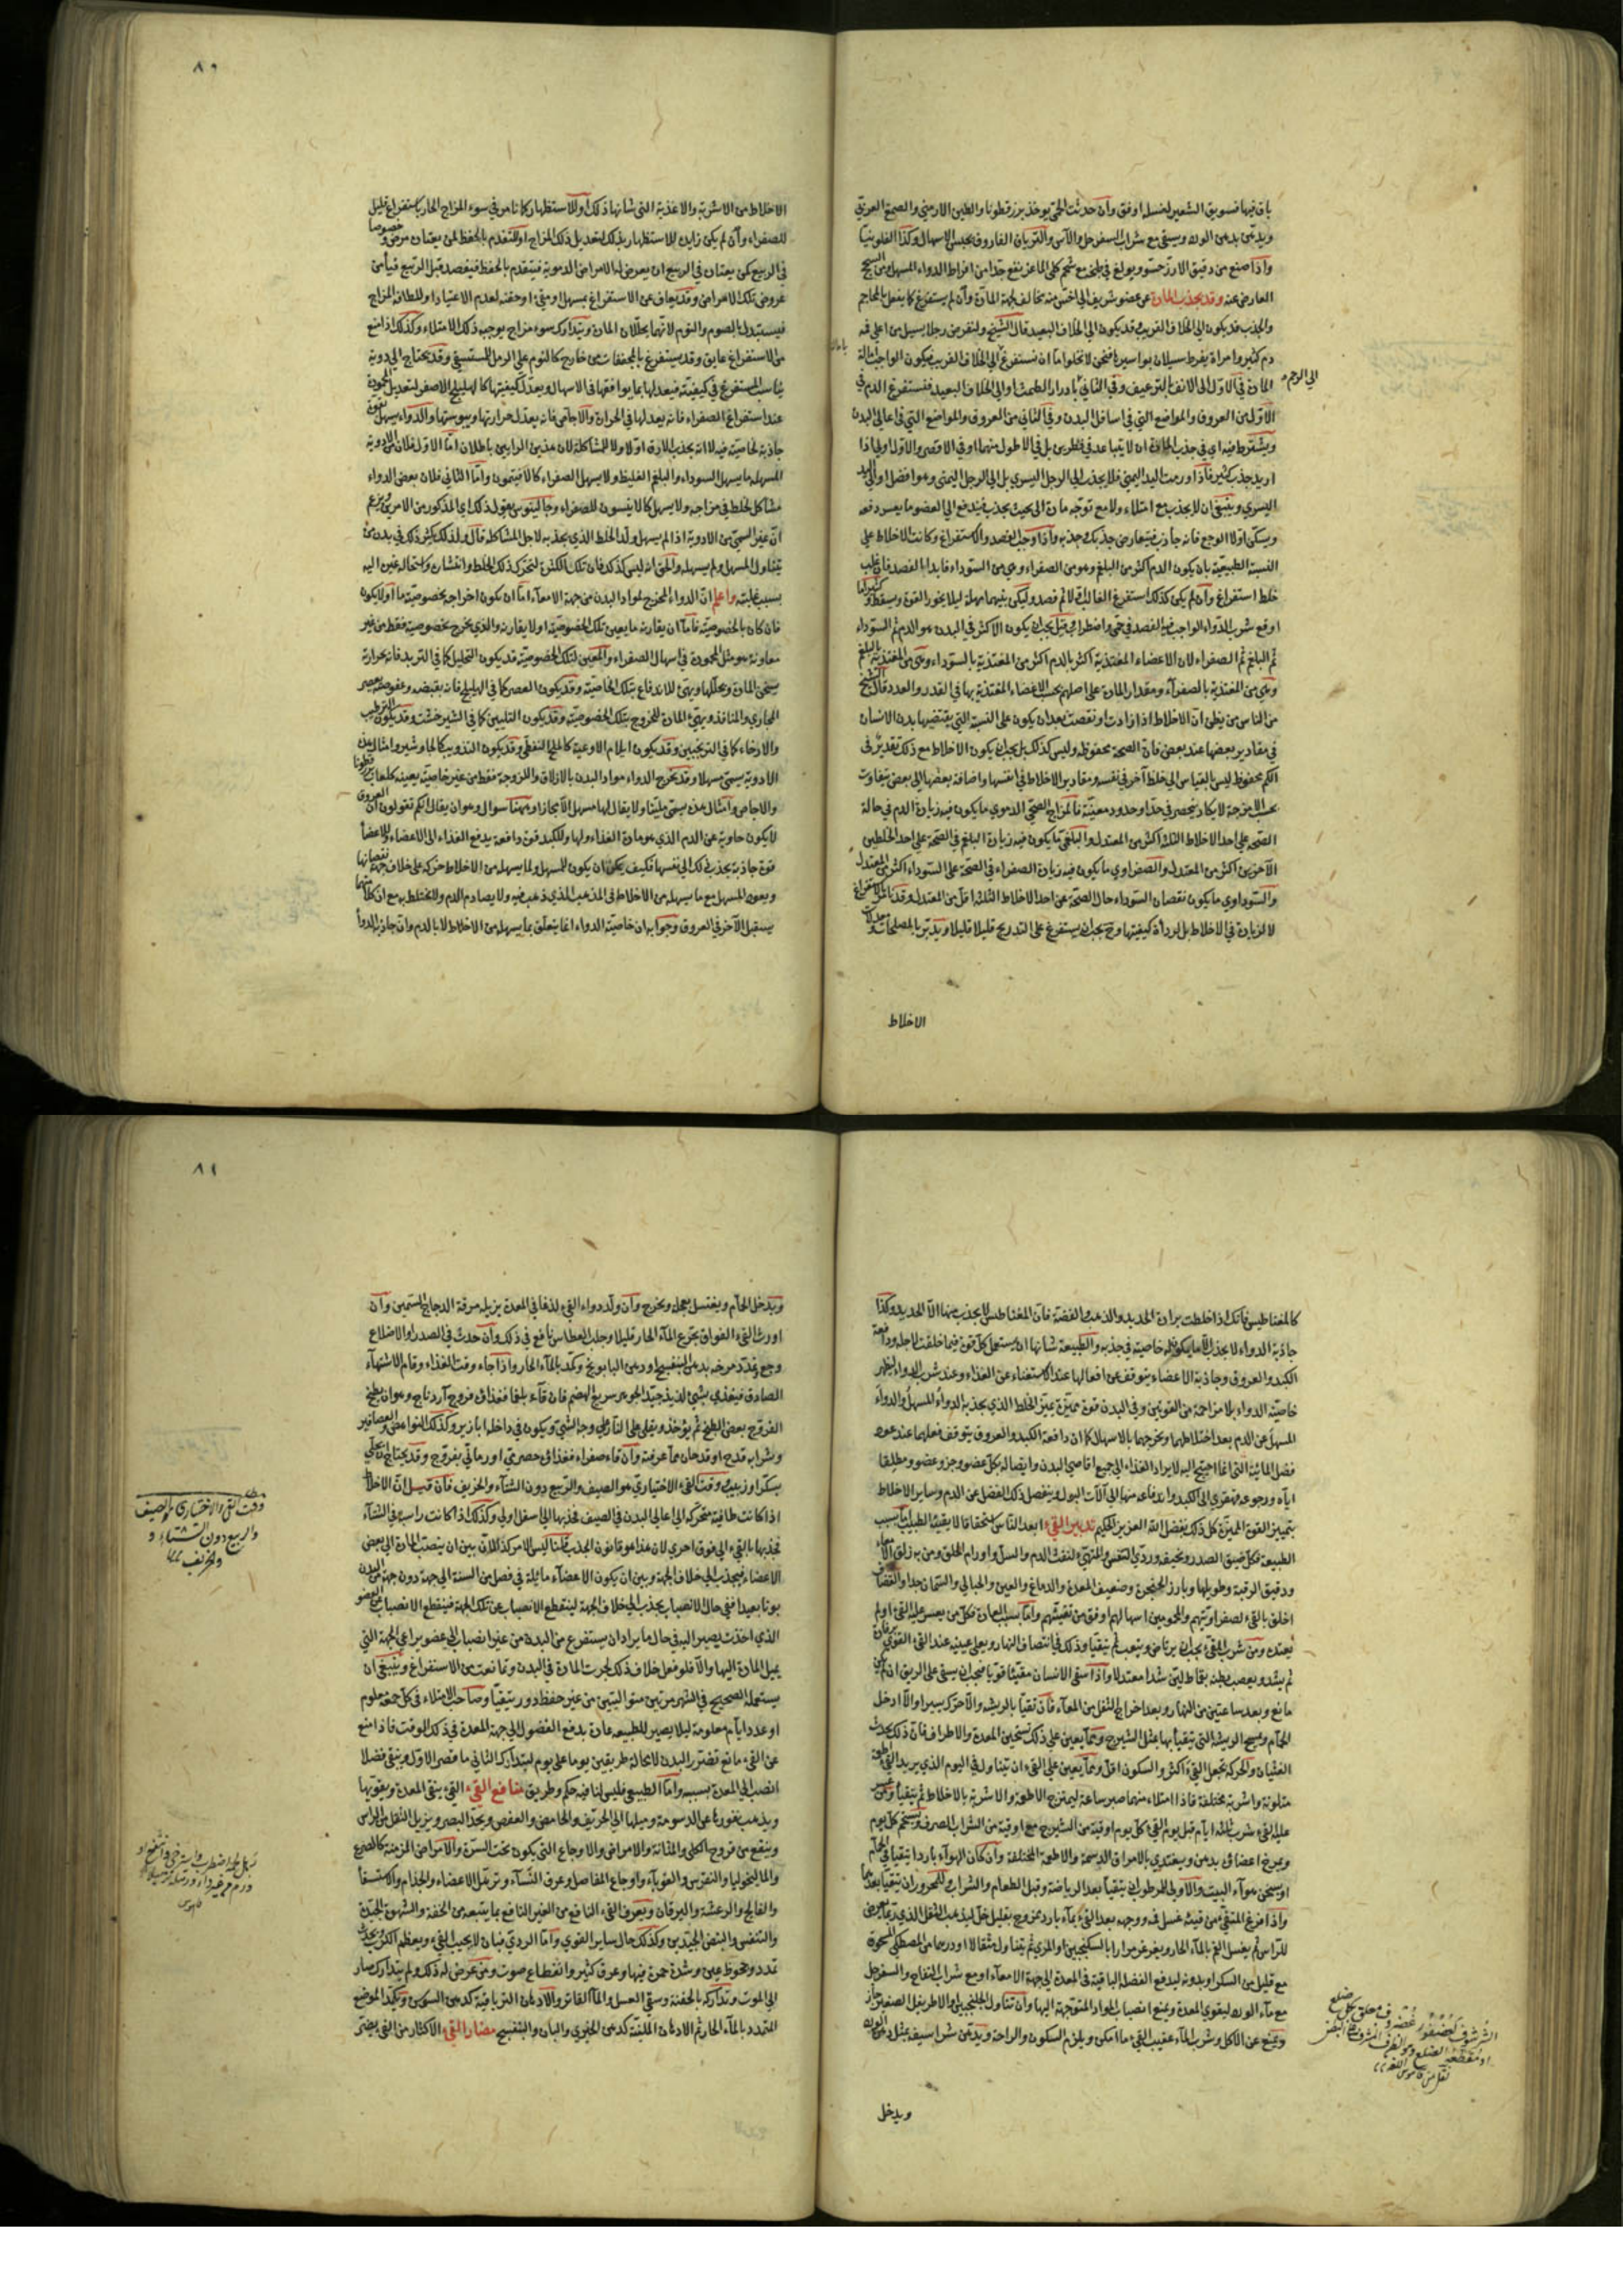 باق فيها فسويق الشعير لغسله اوفق وان حدثت الحمى يوخذ بزرقطونا والطين الارمني والصمغ العربي
ويدهن بدهن الورد ويسقى مع شراب السفرجل والآس والترياق الفاروق يحبس الاسهال وكذا الفلونيا
واذا صنع من دقيق الارز حسو وبولغ في طبخه مع شحم كلى الماعز ينفع جدا من افراط الدواء المسهل ومن السحج
العارض عنه وقد يجذب المادة عن عضو شريف الى اخس منه مخالف لجهة المادة وان لم يستفرغ كما يفعل بالمحاجم
والجذب قد يكون الى الخلاف القريب وقد يكون الى الخلاف البعيد قال الشيخ ولنفرض رجلا يسيل من اعلى فمه
دم كثير وامراة يفرط سيلان بواسيرها فنحن لا نخلو اما ان نستفرغ الى الخلاف القريب فيكون الواجب امالة
المادة في الاول الى الانف بالترعيف وفي الثاني بادرار الطمث او الى الخلاف البعيد فنستفرغ الدم في
الى الرحم
الاول من العروق والمواضع التي في اسافل البدن وفي الثاني من العروق والمواضع التي في اعالي البدن
ويشترط فيه اي في جذب الخلاف ان لا يتباعد في قطرين بل في الاطول منهما او في الاقصر والاول اولى اذا
اريد جذب كثير فاذا ورمت اليد اليمنى فلا يجذب الى الرجل اليسرى بل الى الرجل اليمنى وهو افضل او الى اليد
اليسرى وينبغي ان لا يجذب مع امتلاء ولا مع توجه مادة الى حيث يجذب فيندفع الى العضو ما يعسر دفعه
ويسكن اولا الوجع فانه جاذب فيتعارض جذبك جذبه واذا وجب الفصد والاستفراغ وكانت الاخلاط على
النسبة الطبيعية بان يكون الدم اكثر من البلغم وهو من الصفراء وهي من السوداء فابدا بالفصد فان غلب
خلط استفرغ وان لم يكن كذلك استفرغ الغالب ثم فصد وليكن بينهما مهلة ليلا يخور القوة ويسقط وكثيرا ما
اوقع شرب الدواء الواجب فيه الفصد في حمى واضطراب قيل يجب ان يكون الاكثر في البدن هو الدم ثم السوداء
ثم البلغم ثم الصفراء لان الاعضاء المغتذية اكثر بالدم اكثر من المغتذية بالسوداء وهي من المغتذية بالبلغم
وهي من المغتذية بالصفراء ومقدار المادة على اصلهم بحسب الاعضاء المغتذية بها في القدر والعدد قال الشيخ
من الناس من يظن ان الاخلاط اذا زادت او نقصت بعد ان يكون على النسبة التي يقتضيها بدن الانسان
في مقادير بعضها عند بعض فان الصحة محفوظة وليس كذلك بل يجب ان يكون الاخلاط مع ذلك تقدير في
الكم محفوظ ليس بالقياس الى خلط آخر في نفسه ومقادير الاخلاط في انفسها واضافة بعضها الى بعض يتفاوت
بحسب الامزجة لا يكاد ينحصر في حد او حدود معينة فالمزاج الصحي الدموي ما يكون فيه زيادة الدم في حالة
الصحة على احد الاخلاط الثلثة اكثر من المعتدل والبلغمي ما يكون فيه زيادة البلغم في الصحة على احد الخلطين
الآخرين اكثر من المعتدل والصفراوي ما يكون فيه زيادة الصفراء في الصحة على السوداء اكثر من المعتدل
والسوداوي ما يكون نقصان السوداء حال الصحة عن احد الاخلاط الثلثة اقل من المعتدل وقد يكون الاستفراغ
لا لزيادة في الاخلاط بل لرداءة كيفيتها وح يجب ان يستفرغ على التدريج قليلا قليلا ويدبر بالمصلحات ومعدلات
الاخلاط
٨٠
الاخلاط من الاشربة والاغذية التي شانها ذلك او للاستظهار كما نامر في سوء المزاج الحار باستفراغ قليل
للصفراء وان لم يكن زايدا للاستظهار بذلك لتعديل ذلك المزاج او للتقدم بالحفظ لمن يعتاده مرض وخصوصا
في الربيع كمن يعتاده في الربيع ان يعرض له الامراض الدموية فيتقدم بالحفظ فيفصد قبل الربيع فيأمن
عروض تلك الامراض وقد يعاف عن الاستفراغ بمسهل او مقيئ او حقنة لعدم الاعتياد او للطافة المزاج
فيستبدل بالصوم والنوم لانهما يحللان المادة ويتدارك سوء مزاج يوجبه ذلك الامتلاء وكذلك اذا منع
من الاستفراغ عايق وقد يستفرغ بالمجففات من خارج كالنوم على الرمل للمستسقي وقد يحتاج الى دوية
يناسب المستفرغ في كيفيته فيعدلها بما يوافقها في الاسهال ويعدل كيفيتها كالهليلج الاصفر لتعديل المحمودة
عند استفراغ الصفراء فانه يعدلها في الحرارة والاجاص فانه يعدل حرارتها ويبوستها والدواء يسهل بقوة
جاذبة لخاصية فيه لا انه يجذب الارق اولا ولا للمشاكلة لان هذين الرايين باطلان اما الاول فلان من الادوية
المسهلة ما يسهل السوداء والبلغم الغليظ ولا يسهل الصفراء كالافيتمون واما الثاني فلان بعض الدواء
مشاكل لخلط في مزاجه ولا يسهل كالانيسون للصفراء وجالينوس يقول بذلك اي المذكور من الامرين ويزعم
ان غير السمي من الادوية اذا لم يسهل ولد الخلط الذي يجذبه لاجل المشاكلة قال ولذلك يكثر ذلك في بدن من
يتناول المسهل ولم يسهله والحق انه ليس كذلك فان تلك الكثرة لتحرك ذلك الخلط وانتشاره واستحالة غيره اليه
بسبب غلبته واعلم ان الدواء المخرج لمواد البدن من جهة الامعاء اما ان يكون اخراجه بخصوصية ما او لا يكون
فان كان بالخصوصية فاما ان يقارنه ما يعين تلك الخصوصية او لا يقارنه والذي يخرج بخصوصية فقط من غير
معاونة هو مثل المحمودة في اسهال الصفراء والمعين لتلك الخصوصية قد يكون التحليل كما في التربد فانه بحرارته
يسخن المادة ويحللها ويهيئ للاندفاع بتلك الخاصية وقد يكون العصر كما في الهليلج فانه بقبضه وعفوصته يعصر
المجاري والمنافذ ويهيئ المادة للخروج بتلك الخصوصية وقد يكون التليين كما في الشيرخشت وقد يكون الترطيب
والارخاء كما في الترنجبين وقد يكون ايلام الاوعية كالملح النفطي وقد يكون التذويب كالجاوشير وامثال هذه
الادوية يسمى مسهلا وقد يخرج الدواء مواد البدن بالازلاق واللزوجة فقط من غير خاصية بعينه كلعاب بزرقطونا
والاجاص وامثال هذه يسمى ملينا ولا يقال لها مسهل الا مجازا وههنا سوال وهو ان يقال انكم تقولون ان العروق
لا يكون حاوية عن الدم الذي هو مادة الغذاء ولها وللكبد قوة دافعة يدفع الغذاء الى الاعضاء وللاعضاء
قوة جاذبة يجذب ذلك الى نفسها فكيف يمكن ان يكون للمسهل ولما يسهله من الاخلاط حركة على خلاف جهة
ويعود المسهل مع ما يسهله من الاخلاط في المذهب الذي ذهب فيه ولا يصادم الدم ولا يختلط به مع ان كلا منهما
يستقبل الآخر في العروق وجوابه ان خاصية الدواء انما يتعلق بما يسهله من الاخلاط لا بالدم وان جاذبة الدواء
كالمغناطيس فانك اذا خلطت برادة الحديد والذهب والفضة فان المغناطيس لا يجذب منها الا الحديد وكذا
جاذبة الدواء لا يجذب الا ما يكون له خاصية في جذبه والطبيعة شانها ان يستعمل كل قوة فيما خلقت لاجله ودافعة
الكبد والعروق وجاذبة الاعضاء يتوقف عن افعالها عند الاستغناء عن الغذاء وعند شرب الدواء يظهر
خاصية الدواء بلا مزاحمة من القوتين وفي البدن قوة مميزة يميز الخلط الذي يجذبه الدواء المسهل والدواء
المسهل عن الدم بعد اختلاطهما ويخرجهما بالاسهال كما ان دافعة الكبد والعروق يتوقف فعلهما عند عود
فضل المائية التي انما احتيج اليه لايراد الغذاء الى جميع اقاصي البدن وايصاله بكل عضو وجزو عضو ومطلقا
اياه ورجوعه قهقرى الى الكبد واندفاعه منها الى آلات البول وينفصل ذلك الفضل عن الدم وساير الاخلاط
بتمييز القوة المميزة كل ذلك بفضل الله العزيز الحكيم تدبير القيء ابعد الناس استحقاقا لان يقيئه الطبيب اما بسبب
الطبيعة فكل ضيق الصدر ونحيفه وردي التنفس والمتهيئ لنفث الدم والسل واورام الحلق ومن به زلق الامعاء
ودقيق الرقبة وطويلها وبارز الحنجرة وضعيف المعدة والدماغ والعين والحبالى والسمان جدا والقضاف
اخلق بالقيء لصفراويتهم والمحمومين اسهالهم اوفق من تقيئتهم واما بسبب العادة فكل من يعسر عليه القيء او لم
يعتده ومن شرب المقيئ يجب ان يرتاض ويتعب ثم يتقيأ وذلك في انتصاف النهار ويعلى عينيه عند القيء القوي برفادة
ثم يشد ويعصب بطنه بقماط لين شدا معتدلا واذا سقي الانسان مقيئا قويا فيجب ان يسقى على الريق ان لم يكن
مانع وبعد ساعتين من النهار وبعد اخراج الثفل من المعاء فان تقيأ بالريشة والا حرك يسيرا والا ادخل
الحمام ويمسح الريشة التي يتقيأ بها بمثل الشيرج ومما يعين على ذلك تسخين المعدة والاطراف فان ذلك يحدث
الغثيان والحركة تجعل القيء اكثر والسكون اقل ومما يعين على القيء ان يتناول في اليوم الذي يريد القيء اطعمة
متلونة واشربة مختلفة فاذا امتلاء منها صبر ساعة ليمتزج الاطعمة والاشربة بالاخلاط ثم يتقيأ ومن عسر
عليه القيء شرب ثلثة ايام قبل يوم القيء كل يوم اوقية من الشيرج مع اوقية من الشراب الصرف ويستحم كل يوم
ويمرخ اعضاؤه بدهن ويغتذي بالامراق الدسمة والاطعمة المختلفة وان كان الهواء باردا يتقيأ في الحمام
او يسخن هواء البيت والاولى للمرطوب ان يتقيأ بعد الرياضة وقبل الطعام والشراب وللمحرور ان يتقيأ بعدهما
واذا فرغ المتقيئ من قيئه غسل فمه ووجهه بعد القيء بماء بارد ممزوج بقليل خل ليذهب الثقل الذي ربما يعرض
للراس ثم يغسل الفم بالماء الحار ويغرغر مرارا بالسكنجبين والمري ثم يتناول مثقالا او درهما من المصطكى المسحوقة
مع قليل من السكر او بدونه ليدفع الفضلة الباقية في المعدة الى جهة الامعاء او مع شراب التفاح والسفرجل
مع ماء الورد ليقوي المعدة ويمنع انصباب المواد المتوجهة اليها وان تناول الجلنجبين والاطريفل الصغير جاز
ويمنع عن الاكل وشرب الماء عقيب القيء ما امكن ويلزم السكون والراحة ويدهن شراسيفه بمثل دهن الورد
الشرسوف كعصفور غضروف معلق بكل ضلع
او مقط الضلع وهو الطرف المشرف على البطن
نقل من قاموس اللغة
ويدخل
٨١
ويدخل الحمام ويغتسل بعجل ويخرج وان ولد دواء القيء لذعا في المعدة يزيله مرقة الدجاج السمين وان
اورث القيء الفواق يجرع الماء الحار قليلا وجلب العطاس نافع في ذلك وان حدث في الصدر والاضلاع
وجع وتمدد مرخه بدهن البنفسج او دهن البابونج وكمد بالماء الحار واذا جاء وقت الغذاء وقام الاشتهاء
الصادق فيغذي بشيء لذيذ جيد الجوهر سريع الهضم فان قاء بلغما فغذاؤه فروج آردناج وهو ان يطبخ
الفروج بعض الطبخ ثم يؤخذ ويقلى على النار على وجه الشي ويكون في داخله ابازير وكذلك النواهض والعصافير
وشرابه قدح او قدحان مما عرفته وان قاء صفراء فغذاؤه حصرمي او رماني بفروج وقد يحتاج ان يحلى
بسكر او زبيب ووقت القيء الاختياري هو الصيف والربيع دون الشتاء والخريف فان قيل ان الاخلاط
اذا كانت طافية متحركة الى اعالي البدن في الصيف فجذبها الى اسفل اولى وكذلك اذا كانت راسبة في الشتاء
فجذبها بالقيء الى فوق احرى لان هذا هو قانون الجذب قلنا ليس الامر كذلك لان بين ان ينصب المادة الى بعض
الاعضاء فيجذب الى خلاف الجهة وبين ان يكون الاعضاء مائلة في فصل من السنة الى جهة دون جهة من البدن
بونا بعيدا ففي حال الانصباب يجذب الى خلاف الجهة لينقطع الانصباب عن تلك الجهة فينقطع الانصباب عن العضو
الذي اخذت يصير اليه وفي حال ما يراد ان يستفرغ من البدن من غير انصباب الى عضو يراعى الجهة التي
يميل المادة اليها والا فلو فعل خلاف ذلك لجرت المادة في البدن وتمانعت من الاستفراغ وينبغي ان
يستعمله الصحيح في الشهر مرتين متواليتين من غير حفظ دور يتقيأ وصاحب الامتلاء في كل جمعة معلوم
او عدد ايام معلومة ليلا يصير للطبيعة عادة بدفع الفضول الى جهة المعدة في ذلك الوقت فاذا منع
عن القيء مانع تضرر البدن لا محالة طريقين يوما على يوم ليتدارك الثاني ما قصر الاول وينقي فضلا
انصب الى المعدة بسببه واما الطبيعي فليس لنا فيه حكم وطريق منافع القيء القيء ينقي المعدة ويقويها
ويذهب نفورها عن الدسومة وميلها الى الحريف والحامض والعفص ويحد البصر ويزيل الثقل من الراس
وينفع من قروح الكلى والمثانة والامراض والاوجاع التي يكون تحت السرة والامراض المزمنة كالصرع
والماليخوليا والنقرس والقوباء واوجاع المفاصل وعرق النساء وترهل الاعضاء والجذام والاستسقاء
والفالج والرعشة واليرقان ويعرف القيء النافع من الغير النافع بما يتبعه من الخفة والشهوة الجيدة
والتنفس والنبض الجيدين وكذلك حال ساير القوى واما الردي فبان لا يجيب القيء ويعظم الكرب ويحدث
تمدد وجحوظ عين وشدة حمرة فيها وعرق كثير وانقطاع صوت ومن عرض له ذلك ولم يتدارك صار
الى الموت وتداركه بالحقنة وسقي العسل والماء الفاتر والادهان الترياقية كدهن السوسن وتكميد الموضع
المتمدد بالماء الحار ثم الادهان الملينة كدهن الخيري والبان والبنفسج مضار القيء الاكثار من القيء يضر
وقت القيء الاختياري هو الصيف
والربيع دون الشتاء و
والخريف
ترهل لحمه اضطرب واسترخى وانتفخ او
ورم من غير داء
قاموس